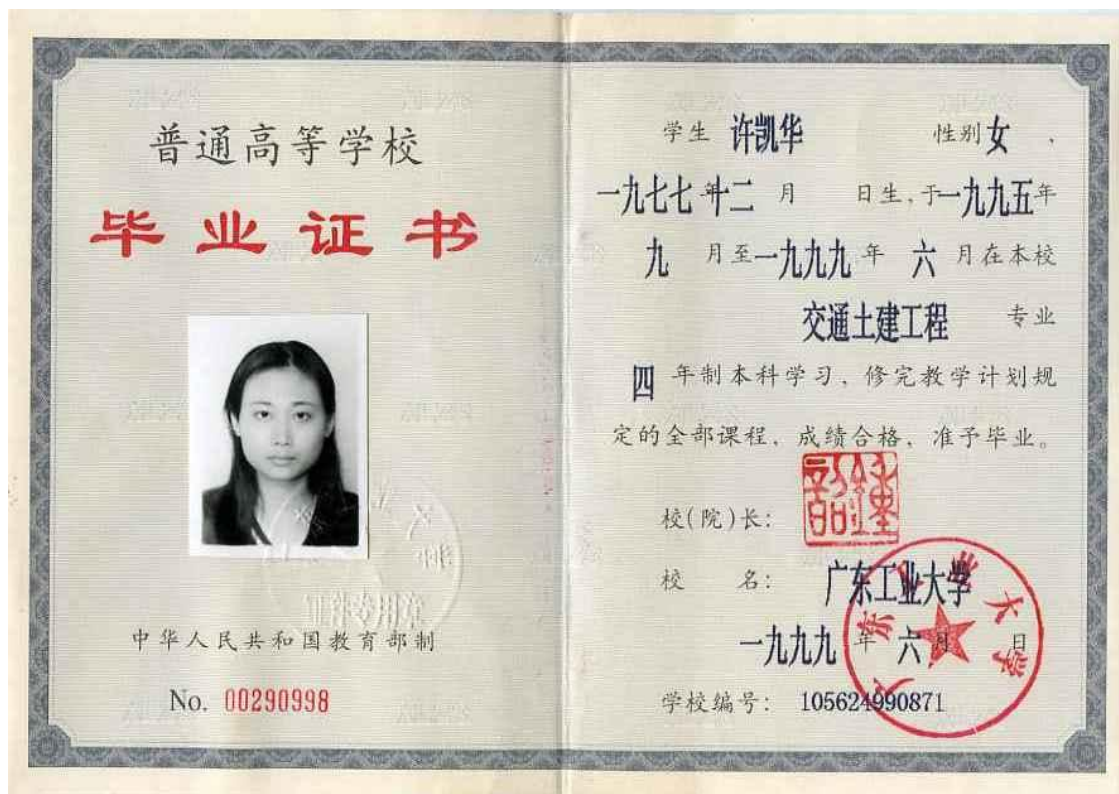 普通高等学校
毕业证书
中华人民共和国教育部制
No. 00290998
学生 许凯华 性别 女 、
一九七七 年 十二 月 日生,于 一九九五 年
九 月至 一九九九 年 六 月在本校
交通土建工程 专业
四 年制本科学习、修完教学计划规
定的全部课程、成绩合格、准予毕业。
校(院)长:
校 名: 广东工业大学
一九九九 年 六 月 日
学校编号: 105624990871
广东工业大学